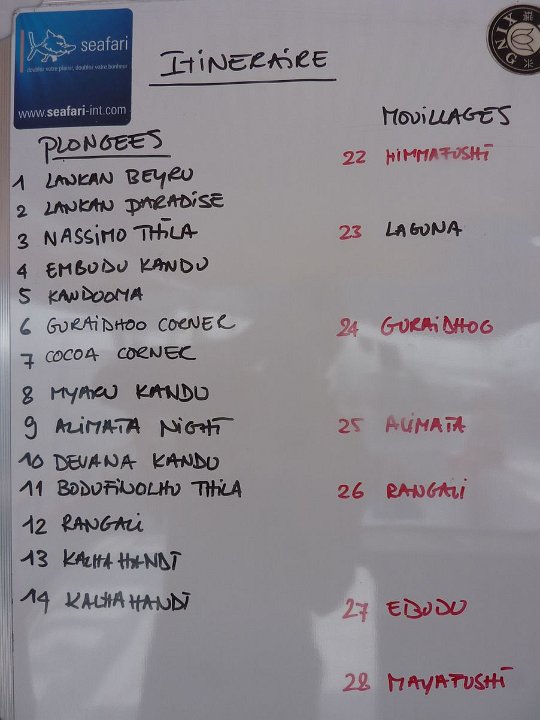 seafari
doublez votre plaisir, doublez votre bonheur
www.seafari-int.com
ITINERAIRE
XING
PLONGEES
MOUILLAGES
22 HIMMAFUSHI
1 LANKAN BEYRU
2 LANKAN PARADISE
3 NASSIMO THILA
23 LAGUNA
4 EMBUDU KANDU
5 KANDOOMA
6 GURAIDHOO CORNER
24 GURAIDHOO
7 COCOA CORNER
8 MYARU KANDU
9 ALIMATA NIGHT
25 ALIMATA
10 DEVANA KANDU
11 BODUFINOLHU THILA
26 RANGALI
12 RANGALI
13 KALHAHANDI
14 KALHAHANDI
27 EBUDU
28 MAYAFUSHI